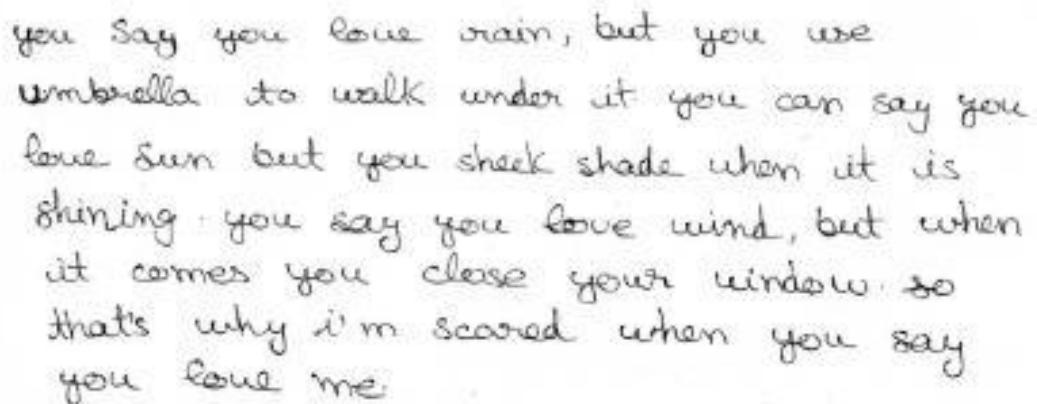 you say you love rain, but you use
umbrella to walk under it you can say you
love sun but you sheek shade when it is
shining. you say you love wind, but when
it comes you close your window. so
that's why i'm scared when you say
you love me.